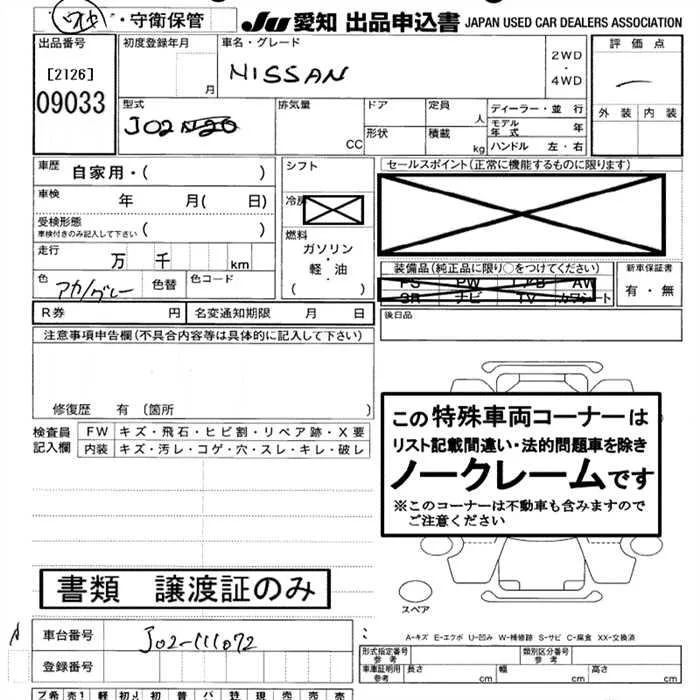 ・守衛保管
JU 愛知 出品申込書 JAPAN USED CAR DEALERS ASSOCIATION
出品番号
[2126]
09033
初度登録年月
月
車名・グレード
NISSAN
2WD
・
4WD
評価点
外装 内装
型式
J02
排気量
CC
ドア
形状
定員
人
積載
kg
ディーラー・並行
モデル年式 年
ハンドル 左・右
車歴 自家用・( )
車検 年 月( 日)
受検形態
車検付きのみ記入して下さい ( )
走行 万 千 km
色 アカ/グレー 色替 色コード
シフト
冷房
燃料
ガソリン
・
軽・油
( )
セールスポイント(正常に機能するものに限ります)
装備品(純正品に限り○をつけてください)
PS PW エアB AW
SR ナビ TV カワシート
新車保証書
有・無
R券 円 名変通知期限 月 日
後日品
注意事項申告欄(不具合内容等は具体的に記入して下さい)
修復歴 有(箇所 )
検査員記入欄
FW キズ・飛石・ヒビ割・リペア跡・X要
内装 キズ・汚レ・コゲ・穴・スレ・キレ・破レ
この特殊車両コーナーは
リスト記載間違い・法的問題車を除き
ノークレームです
※このコーナーは不動車も含みますので
ご注意ください
書類 譲渡証のみ
スペア
車台番号 J02-111072
登録番号
A-キズ E-エクボ U-凹み W-補修跡 S-サビ C-腐食 XX-交換済
形式指定番号
参考
類別区分番号
参考
車庫証明用
参考
長さ cm 幅 cm 高さ cm